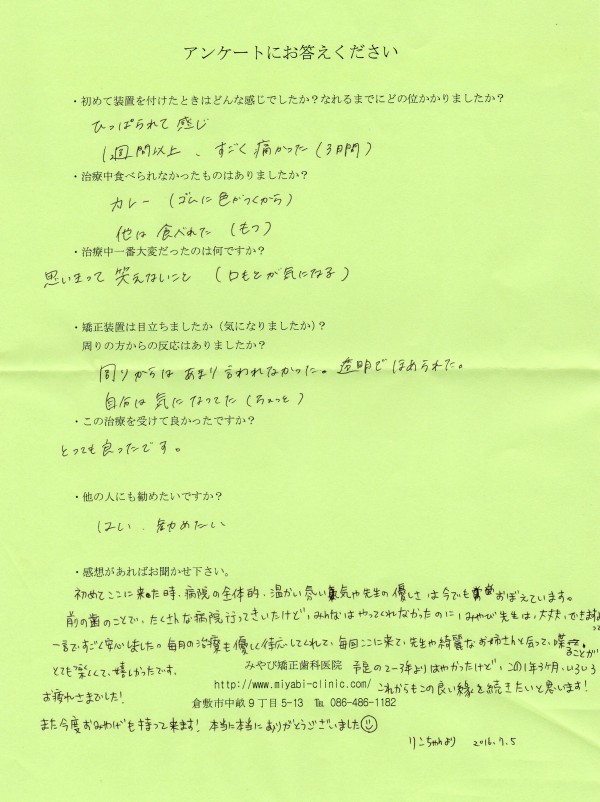 アンケートにお答えください
・初めて装置を付けたときはどんな感じでしたか？なれるまでにどの位かかりましたか？
ひっぱられて感じ
1週間以上、すごく痛かった（3日間）
・治療中食べられなかったものはありましたか？
カレー（ゴムに色がつくから）
他は食べれた（もつ）
・治療中一番大変だったのは何ですか？
思いきって笑えないこと（口もとが気になる）
・矯正装置は目立ちましたか（気になりましたか）？
周りの方からの反応はありましたか？
周りからはあまり言われなかった。透明でほめられた。
自分は気になってた（ちょっと）
・この治療を受けて良かったですか？
とっても良ったです。
・他の人にも勧めたいですか？
はい、勧めたい
・感想があればお聞かせ下さい。
初めてここに来た時、病院の全体的、温かい雰い気や先生の優しさは今でもおぼえています。
前の歯のことで、たくさんな病院行ってきいたけど、みんなはやってくれなかったのに、みやび先生は、大丈夫、できますよ
一言ですごく安心しました。毎月の治療も優しく対応してくれて、毎回ここに来て、先生や綺麗なお姉さんと会って、喋せることが
とても楽くて、嬉しかったです。
みやび矯正歯科医院
予定の2〜3年よりはやかったけど、この1年3ヶ月、いろいろ
http://www.miyabi-clinic.com/
お疲れさまでした！
これからもこの良い縁を続きたいと思います！
倉敷市中畝９丁目5-13 ℡ 086-486-1182
また今度おみやげも持って来ます！本当に本当にありがとうございました
りこちゃんより 2016.7.5